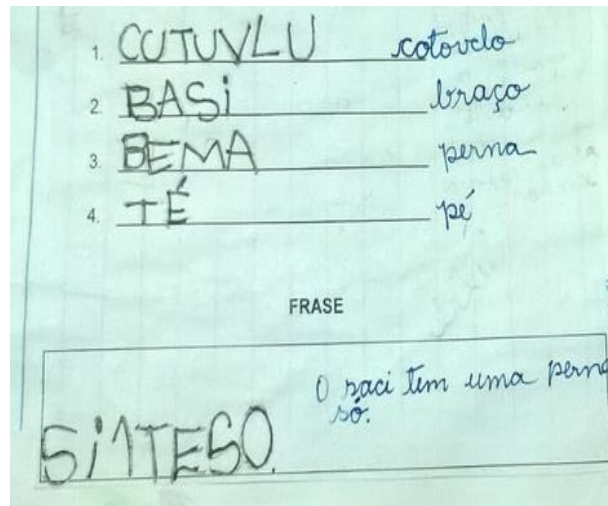 1. CUTUVLU cotovelo
2. BASi braço
3. BEMA perna
4. TÉ pé
FRASE
O saci tem uma perna
só.
Si1TESO.